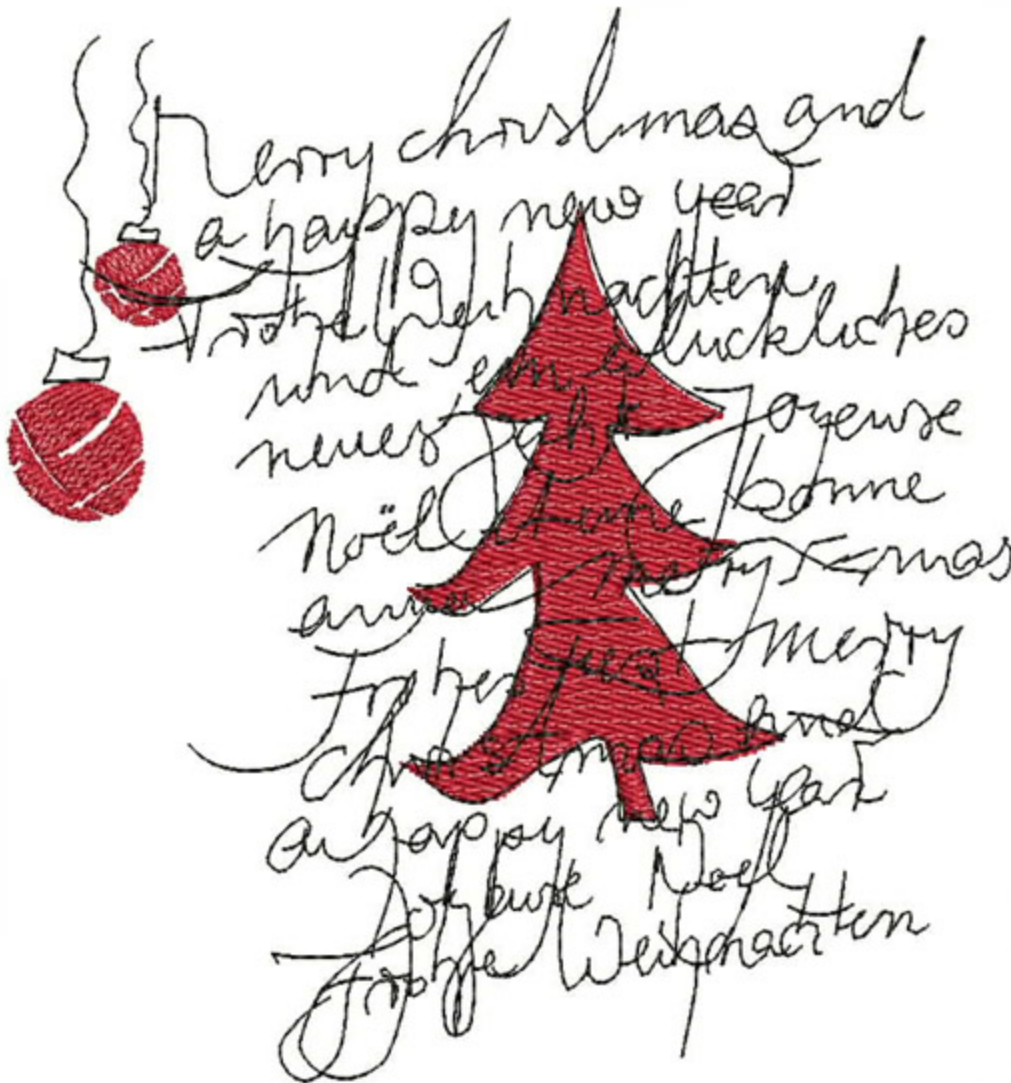 Merry christmas and
a happy new year
Frohe Weihnachten
und ein glückliches
neues Jahr Joyeuse
Noël et une bonne
année merry x-mas
Frohes Fest merry
christmas and
a happy new year
Joyeuse Noel
Frohe Weihnachten